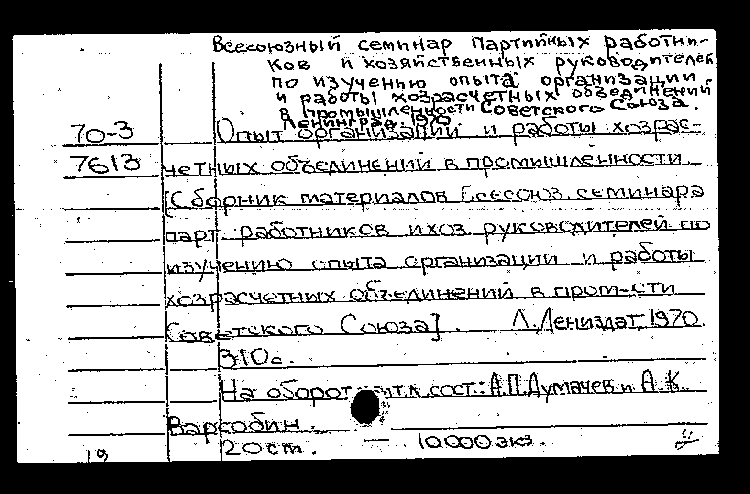 Всесоюзный семинар партийных работни-
ков и хозяйственных руководителей
по изучению опыта организации
и работы хозрасчетных объединений
в промышленности Советского Союза.
Ленинград. 1970
70-3 Опыт организации и работы хозрас-
7613 четных объединений в промышленности
[Сборник материалов Всесоюз. семинара
парт. работников и хоз. руководителей по
изучению опыта организации и работы
хозрасчетных объединений в пром-сти
Советского Союза]. Л. Лениздат, 1970.
310с.
На оборот. тит. л. сост.: А.П. Думачев и А.К.
Варсобин.
19 20 ст. — 10.000 экз.